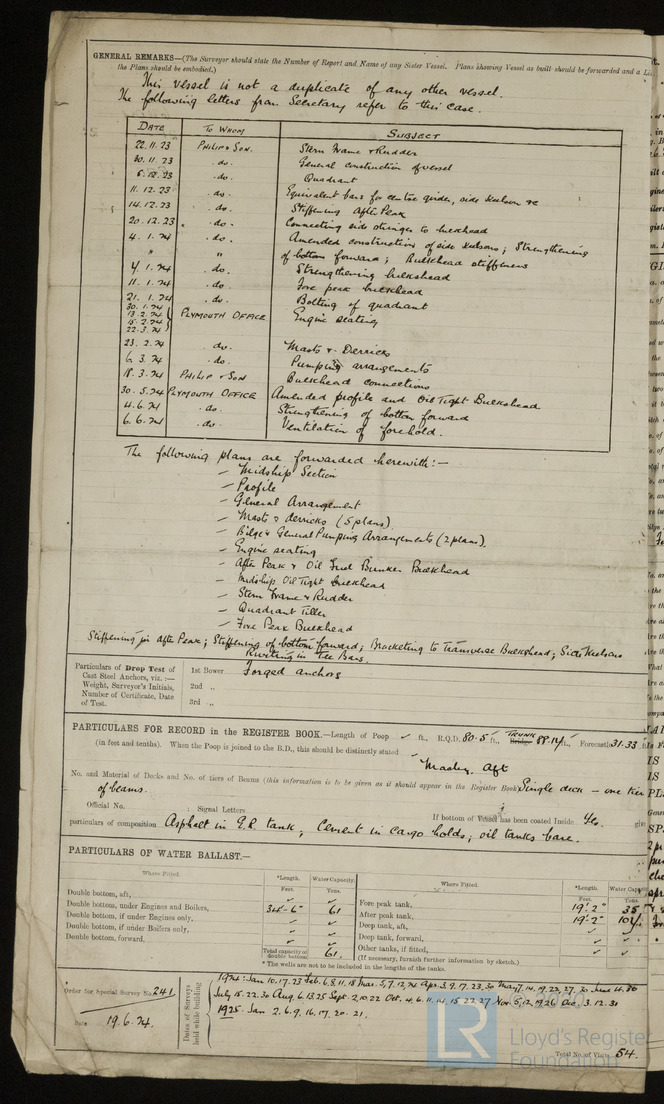 GENERAL REMARKS—(The Surveyor should state the Number of Report and Name of any Sister Vessel. Plans showing Vessel as built should be forwarded and a Li
the Plans should be embodied.)
This vessel is not a duplicate of any other vessel.
The following letters from Secretary refer to this case.
DATE TO WHOM SUBJECT
22.11.23 PHILIP & SON. Stern Frame & Rudder
30.11.23 .do. General construction of vessel
5.12.23 .do. Quadrant
11.12.23 .do. Equivalent bars for centre girder, side keelson &c
14.12.23 .do. Stiffening After Peak
20.12.23 .do. Connecting side stringer to bulkhead
4.1.24 .do. Amended construction of side keelsons; Strengthening
" " of bottom forward; Bulkhead stiffeners
4.1.24 .do. Strengthening bulkhead
11.1.24 .do. Fore peak bulkhead
21.1.24 .do. Bolting of quadrant
30.1.24
13.2.24 PLYMOUTH OFFICE Engine seating
15.2.24
22.3.24
23.2.24 .do. Masts & Derricks
6.3.24 .do. Pumping arrangements
18.3.24 PHILIP & SON Bulkhead connections
30.5.24 PLYMOUTH OFFICE Amended profile and Oil Tight Bulkhead
4.6.24 .do. Strengthening of bottom forward
6.6.24 .do. Ventilation of forehold.
The following plans are forwarded herewith:—
— Midship Section
— Profile
— General Arrangement
— Masts & derricks (5 plans)
— Bilge & General Pumping Arrangements (2 plans).
— Engine seating
— After Peak & Oil Fuel Bunker Bulkhead
— Midship Oil Tight bulkhead
— Stern Frame & Rudder
— Quadrant Tiller
— Fore Peak Bulkhead
Stiffening in After Peak; Stiffening of bottom forward; Bracketing to Transverse Bulkhead; Side Keelsons
Riveting in Tee Bars.
Particulars of Drop Test of
Cast Steel Anchors, viz.:—
Weight, Surveyor's Initials,
Number of Certificate, Date
of Test.
1st Bower Forged anchors
2nd "
3rd "
PARTICULARS FOR RECORD in the REGISTER BOOK.—Length of Poop ✓ ft., R.Q.D. 80.5 ft., TRUNK Bridge 88.14 ft., Forecastle 31.33 ft
(in feet and tenths). When the Poop is joined to the B.D., this should be distinctly stated
Machy. Aft
No. and Material of Decks and No. of tiers of Beams (this information is to be given as it should appear in the Register Book) Single deck — one tier
of beams.
Official No. ; Signal Letters If bottom of Vessel has been coated Inside Yes. give
particulars of composition Asphalt in E.R. tank; Cement in cargo holds; oil tanks bare.
PARTICULARS OF WATER BALLAST.—
Where Fitted. *Length. Feet. Water Capacity. Tons.
Double bottom, aft, ✓ ✓
Double bottom, under Engines and Boilers, 34-6" 61
Double bottom, if under Engines only, ✓ ✓
Double bottom, if under Boilers only, ✓ ✓
Double bottom, forward, ✓ ✓
Total capacity of double bottom 61.
Where Fitted. *Length. Feet. Water Capacity. Tons.
Fore peak tank, 19'.2" 35
After peak tank, 19'-2"
Deep tank, aft, ✓ ✓
Deep tank, forward, ✓ ✓
Other tanks, if fitted, ✓ ✓
(If necessary, furnish further information by sketch.)
* The wells are not to be included in the lengths of the tanks.
Order for Special Survey No. 241
Date 19.6.24.
Dates of Surveys
held while building
1924: Jan 10, 17, 23 Feb. 6, 8, 11, 18 Mar. 5, 7, 12, 24 Apr. 3, 9, 17, 23, 30 May 7, 14, 19, 22, 27, 30 June 4,
July 15, 22, 30 Aug 6, 13, 25 Sept. 2, 10, 22 Oct. 4, 6, 11, 15, 22, 27 Nov. 5, 12, 19, 26 Dec. 3, 12, 31
1925. Jan 2, 6, 9, 16, 17, 20, 21.
Total No. of Visits 54.
LR
Lloyd's Register
Foundation